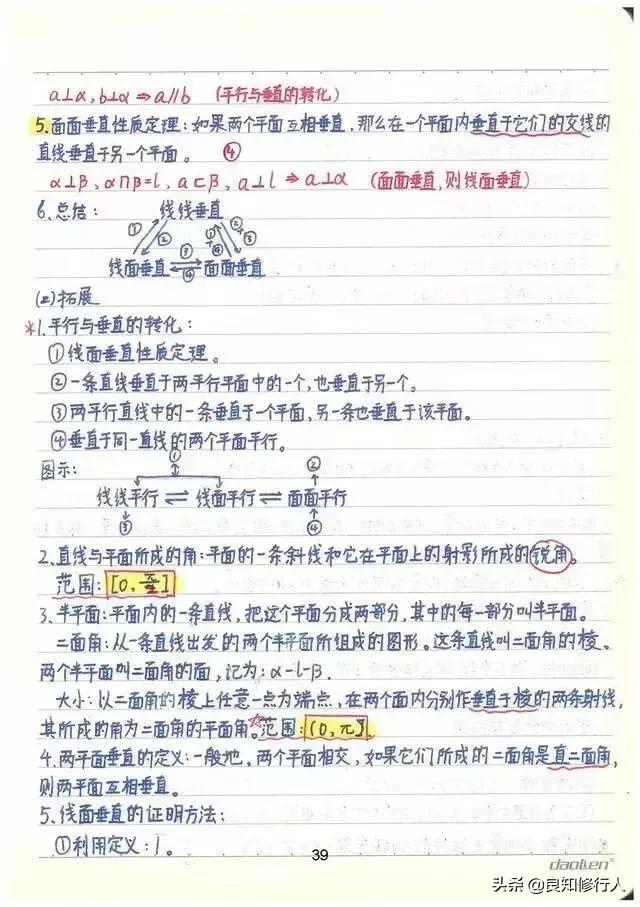 a⊥α, b⊥α ⇒ a∥b (平行与垂直的转化)
5.面面垂直性质定理:如果两个平面互相垂直,那么在一个平面内垂直于它们的交线的
直线垂直于另一个平面。 ④
α⊥β, α∩β=l, a⊂β, a⊥l ⇒ a⊥α (面面垂直,则线面垂直)
6.总结: 线线垂直
① ② ① ⑤ ② ③
③
线面垂直 ⇌ 面面垂直
④
(二)拓展
*1.平行与垂直的转化:
①线面垂直性质定理。
②一条直线垂直于两平行平面中的一个,也垂直于另一个。
③两平行直线中的一条垂直于一个平面,另一条也垂直于该平面。
④垂直于同一直线的两个平面平行。
图示: ① ②
线线平行 ⇌ 线面平行 ⇌ 面面平行
③ ④
2.直线与平面所成的角:平面的一条斜线和它在平面上的射影所成的锐角。
范围:[0, π/2]
3.半平面:平面内的一条直线,把这个平面分成两部分,其中的每一部分叫半平面。
二面角:从一条直线出发的两个半平面所组成的图形。这条直线叫二面角的棱。
两个半平面叫二面角的面,记为:α-l-β.
大小:以二面角的棱上任意一点为端点,在两个面内分别作垂直于棱的两条射线,
其所成的角为二面角的平面角。☆范围:(0,π].
4.两平面垂直的定义:一般地,两个平面相交,如果它们所成的二面角是直二面角,
则两平面互相垂直。
5.线面垂直的证明方法:
①利用定义:1。
39
daolen®
头条 @良知修行人